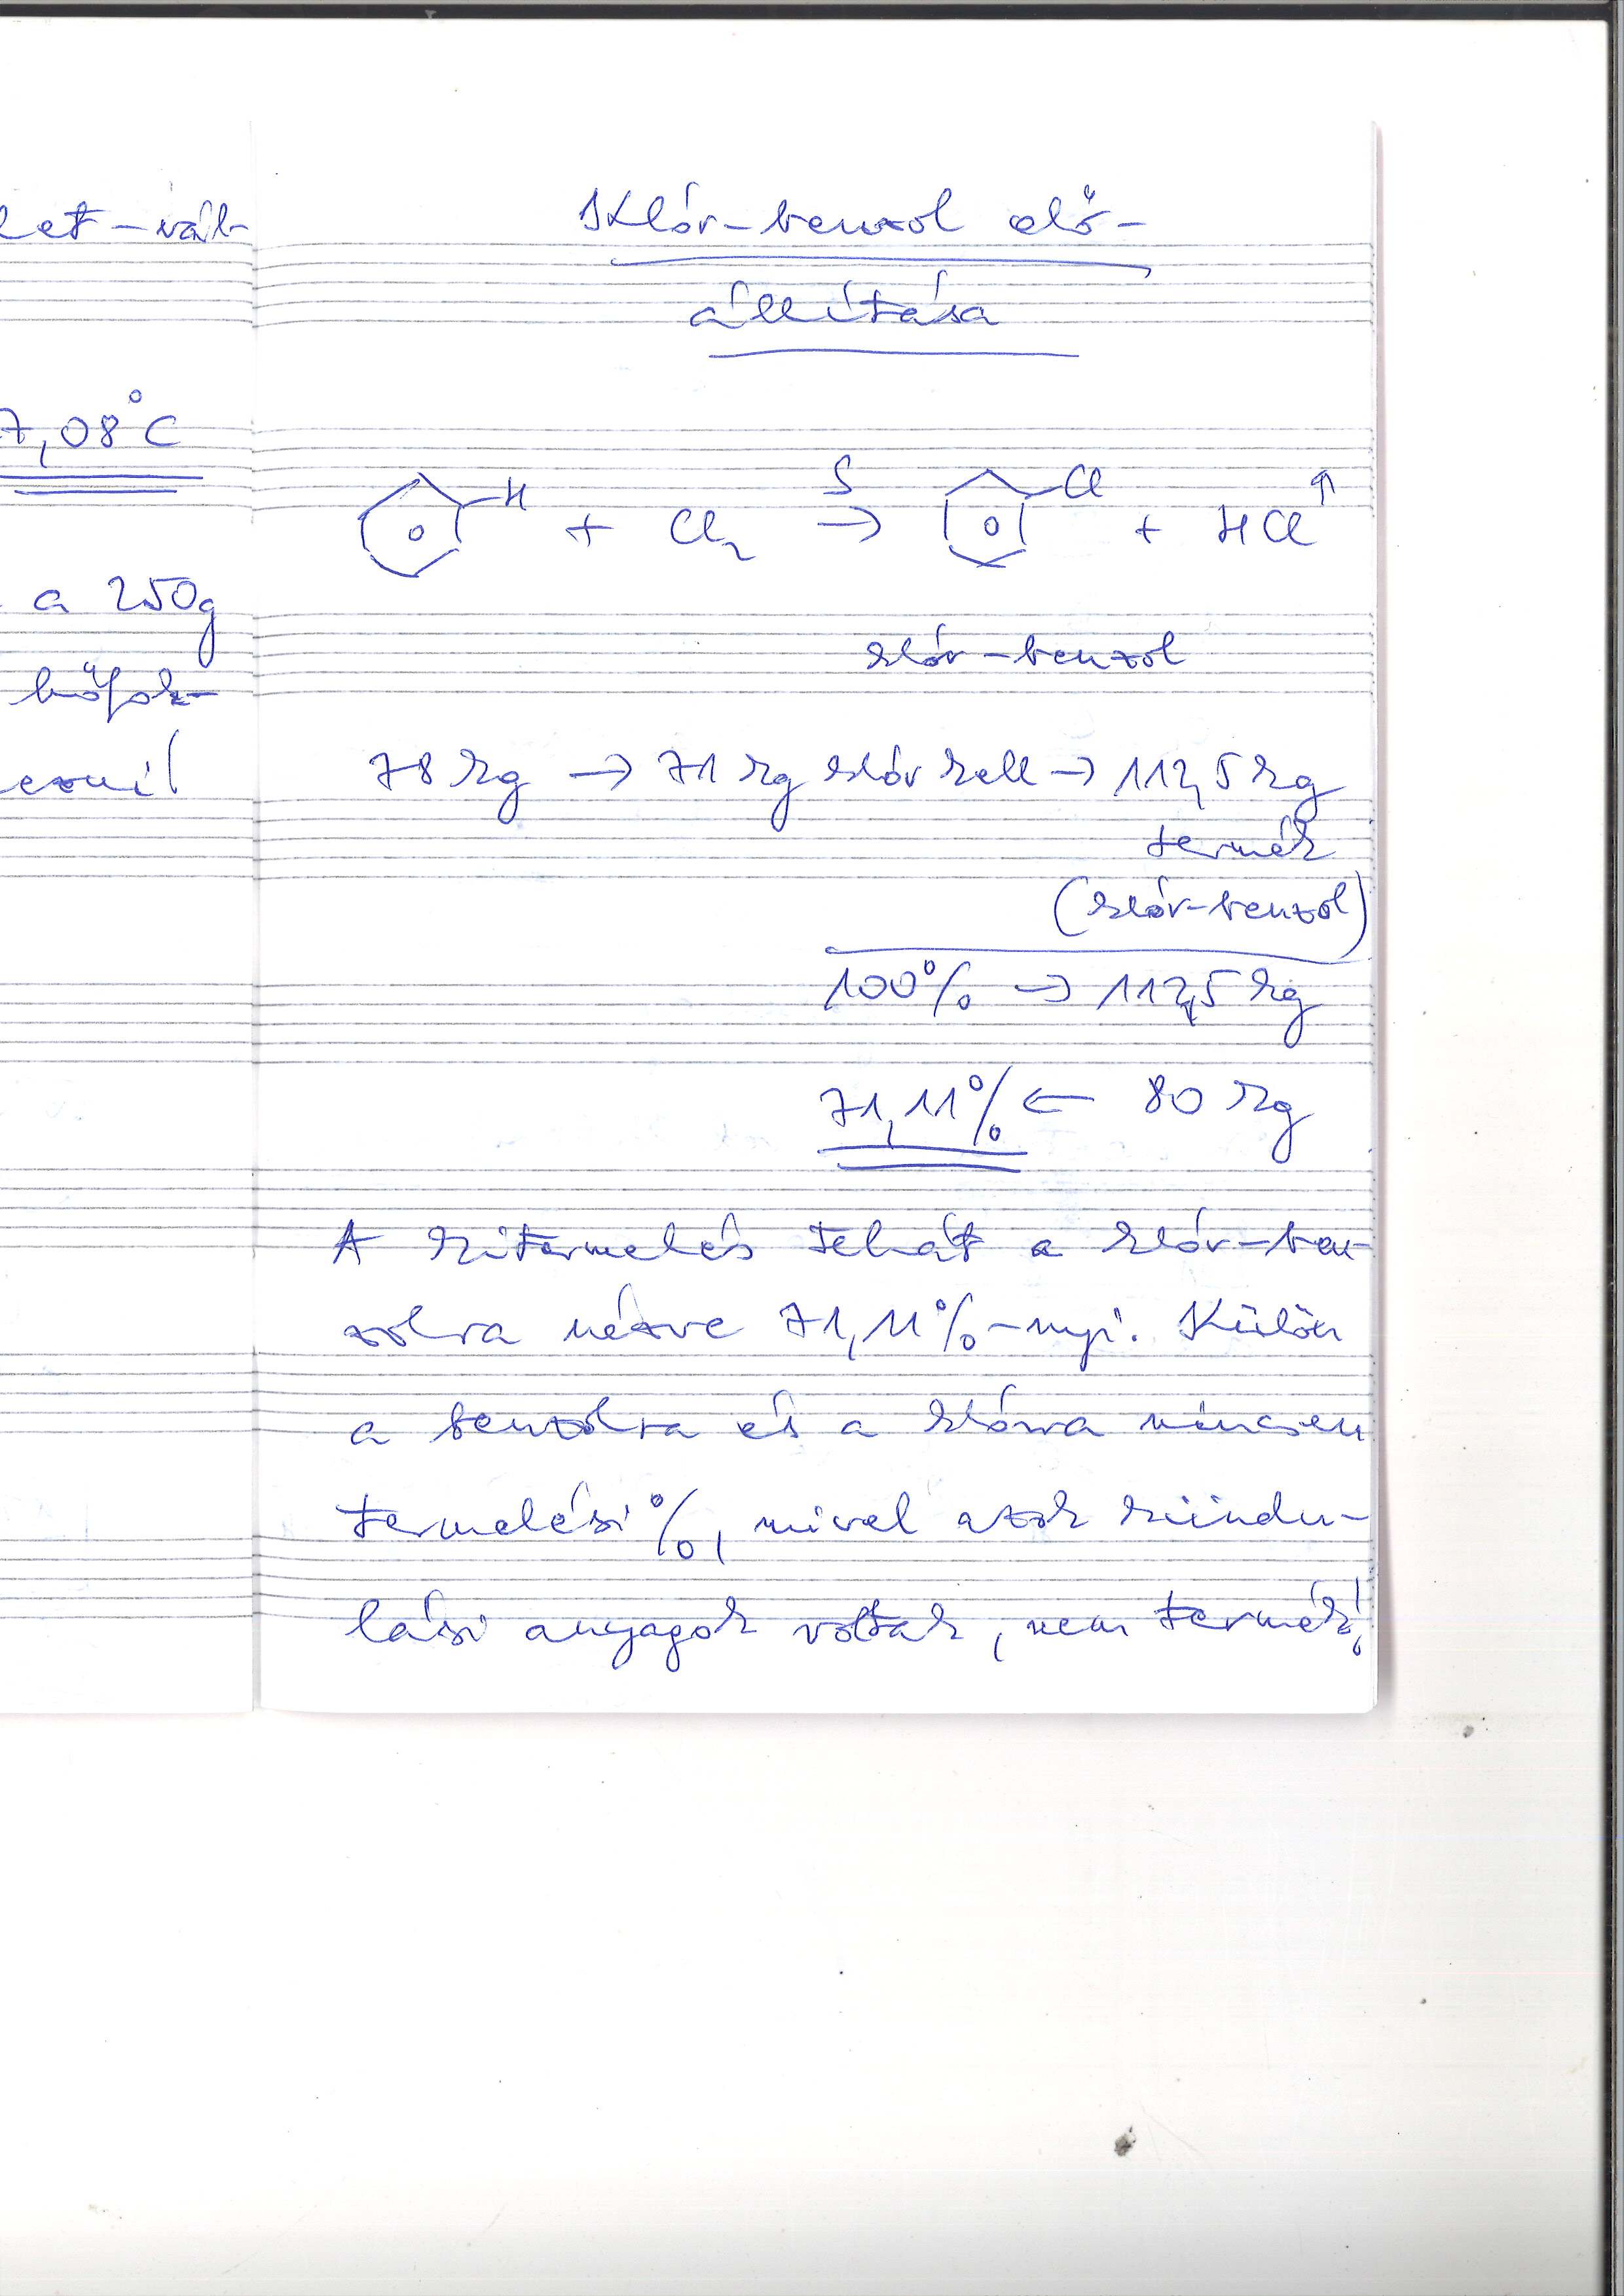 let-vál-
7,08°C
a 250g
hőfok-
Klór-benzol elő-
állítása
H + Cl2 S → Cl + HCl↑
klór-benzol
78 kg → 71 kg klór kell → 112,5 kg
termék
(klór-benzol)
100% → 112,5 kg
71,11% ← 80 kg
A kitermelés tehát a klór-ben-
zolra nézve 71,11%-nyi. Külön
a benzolra és a klórra nincsen
termelési %, mivel azok kiindu-
lási anyagok voltak, nem termék!